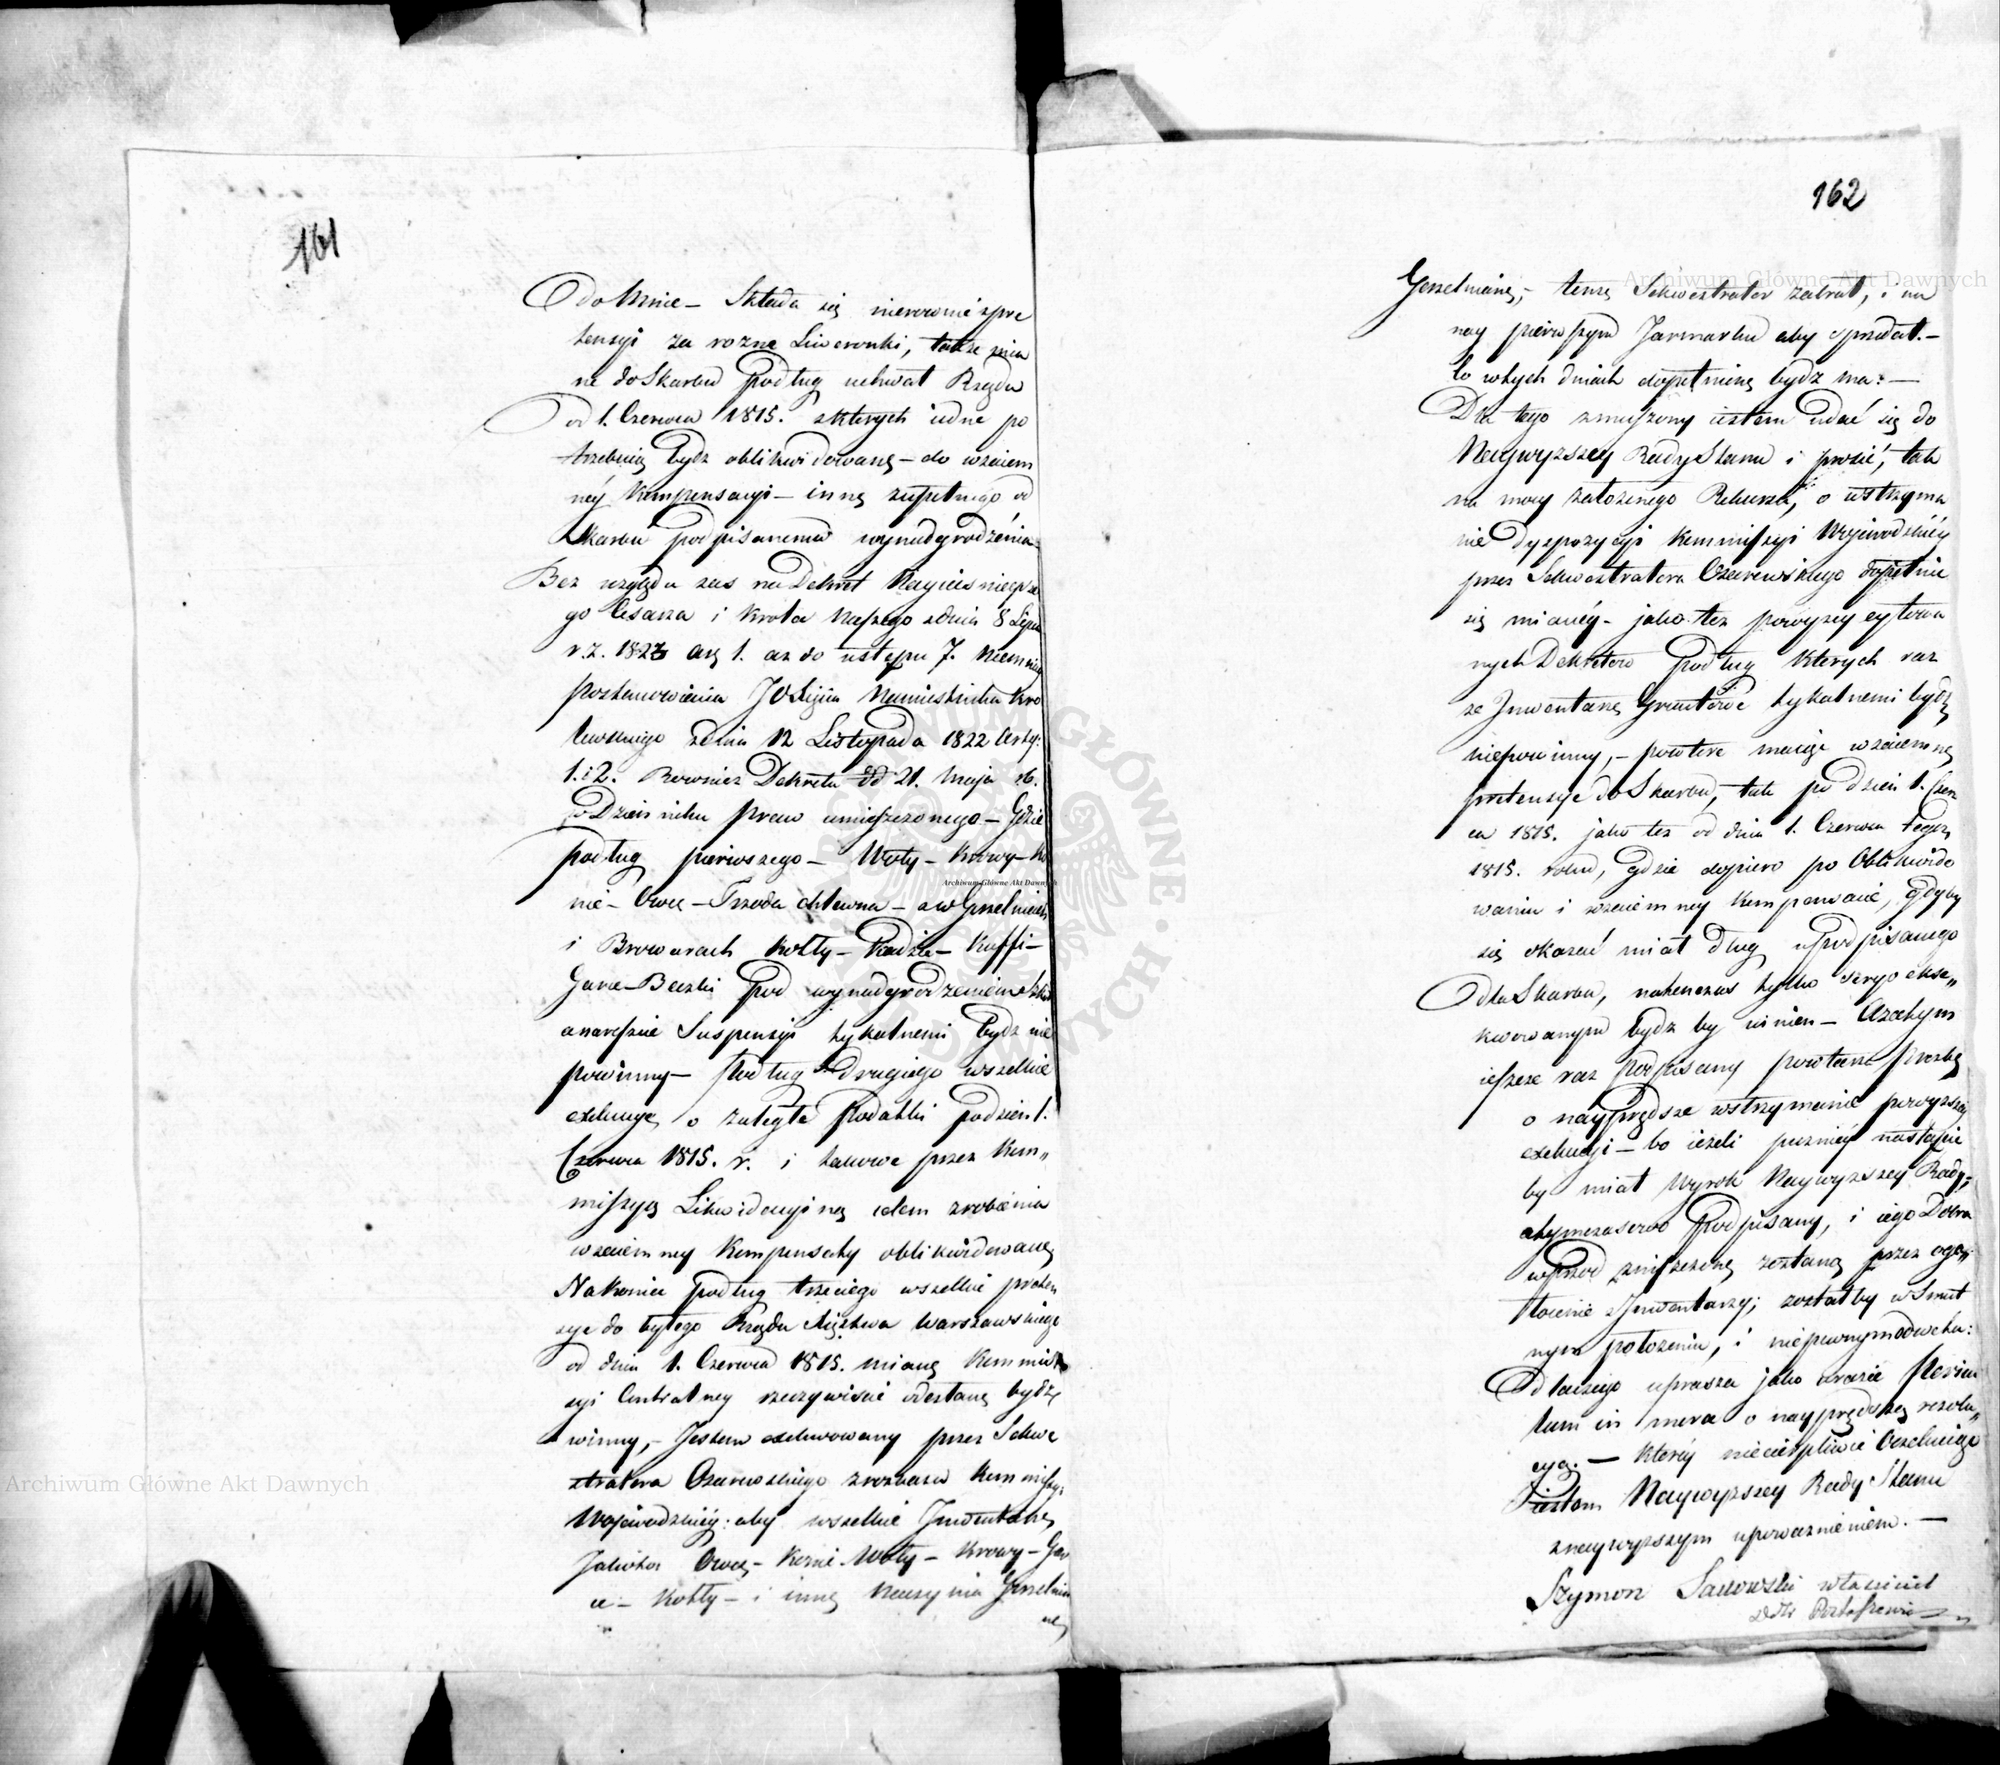 161
do Mnie – Składa się nierownie z pre
tensyi za rozne Liwerunki, także mia
ne do Skarbu podług uchwał Rządu
od 1. Czerwca 1815. z ktorych iedne po
trzebuią bydz oblikwidowane – do wzaiem
néy kompensacyi – inne zupełnego od
Skarbu podpisanemu wynadgrodzenia.
Bez względu zas na Dekret Nayiasnieysze
go Cesarza i Krola Naszego z dnia 8 Lipca
r. z. 1823 Art 1. az do ustępu 7. niemniey
postanowienia JO Xięcia Namiestnika Kro
lewskiego z dnia 12 Listopada 1822 Arty:
1. i 2. Rownież Dekretu od 21. Maja rb.
w Dzienniku praw umieszczonego – Gdzie
podług pierwszego – Woły – Krowy – Ko
nie – Owce – Trzoda chlewna – a w Gorzelniach
i Browarach Kotły – Kadzie – Kuffi –
Garce – Beczki pod wynadgrodzeniem
a nareszcie Suspensyi tykalnemi bydz nie
powinny – podług drugiego wszelkie
exekucye o zaległe Podatki po dzien 1.
Czerwca 1815. r. i takowe przez Kom„
missyą Likwidacyiną celem zrobienia
wzaiemney Kompensaty oblikwidowane
Nakoniec podług trzeciego wszelkie preten
sye do byłego Rządu Xięstwa Warszawskiego
od dnia 1. Czerwca 1815. miane Kommis
syi Centralney rzeczywiscie odesłane bydz
winny, – Jestem exekwowany przez Sekwe
stratora Ozarowskiego z rozkazu Kommissyi
Wojewodzkiéy: aby wszelkie Inwentarze
Jakoto: Owce – Konie – Woły – Krowy – Gar
ce – Kotły – i inne Naczynia Gorzelnia
ne
162
Gorzelniane, – tenze Sekwestrator zabrał, i na
nay pierwszym Jarmarku aby sprzedał. –
to w tych dniach dopełnione bydz ma: –
Dla tego zmuszony iestem udać się do
Naywyzszey Rady Stanu i prosić, tak
na mocy załozonego Rekursu, o wstrzyma
nie dyspozycyi Kommissyi Wojewodzkiéy
przez Sekwestratora Ozarowskiego dopełnic
się mianéy – jako tez powyzey cytowa
nych Dekretow podług ktorych raz
ze Inwentarze Gruntowe tykalnemi bydz
niepowinny, – powtore maiąc wzaiemne
pretensye do Skarbu, tak po dzien 1. Czerw
ca 1815. jako tez od dnia 1. Czerwca tegoz
1815. roku, gdzie dopiero po Oblikwido
waniu i wzaiemney kompensacie, gdyby
się okazać miał dług u podpisanego
dla Skarbu, natenczas tylko o tego exe„
kwowanym bydz by winien – A zatym
ieszcze raz Podpisany powtarza prozbę
o nayprędsze wstrzymanie powyzszey
exekucyi – bo iezeli pozniéy nastąpic
by miał Wyrok Naywyzszey Rady,
a tymczasowo Podpisany, i iego Dobra
wprzod zniszczone zostaną przez ogo„
łocenie z Inwentarzy; zostałby w Smut
nym położeniu, i niepewnym odwetu:
dlaczego uprasza jako w razie Pericu
lum in mora o nayprędszą rezolu„
cyą. – ktoréy niecierpliwie Oczekuiąc
Jestem Naywyzszey Rady Stanu
z naywyzszym upowaznieniem. –
Szymon Sadowski własciciel